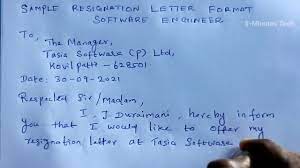 SAMPLE RESIGNATION LETTER FORMAT
SOFTWARE ENGINEER
5-Minutes Tech
To,
The Manager,
Tasia Software (P) Ltd,
Kovilpatti - 628501.
Date: 30-09-2021
Respected Sir/Madam,
I. J. Duraimani, hereby inform
you that I would like to offer my
resignation letter at Tasia Software